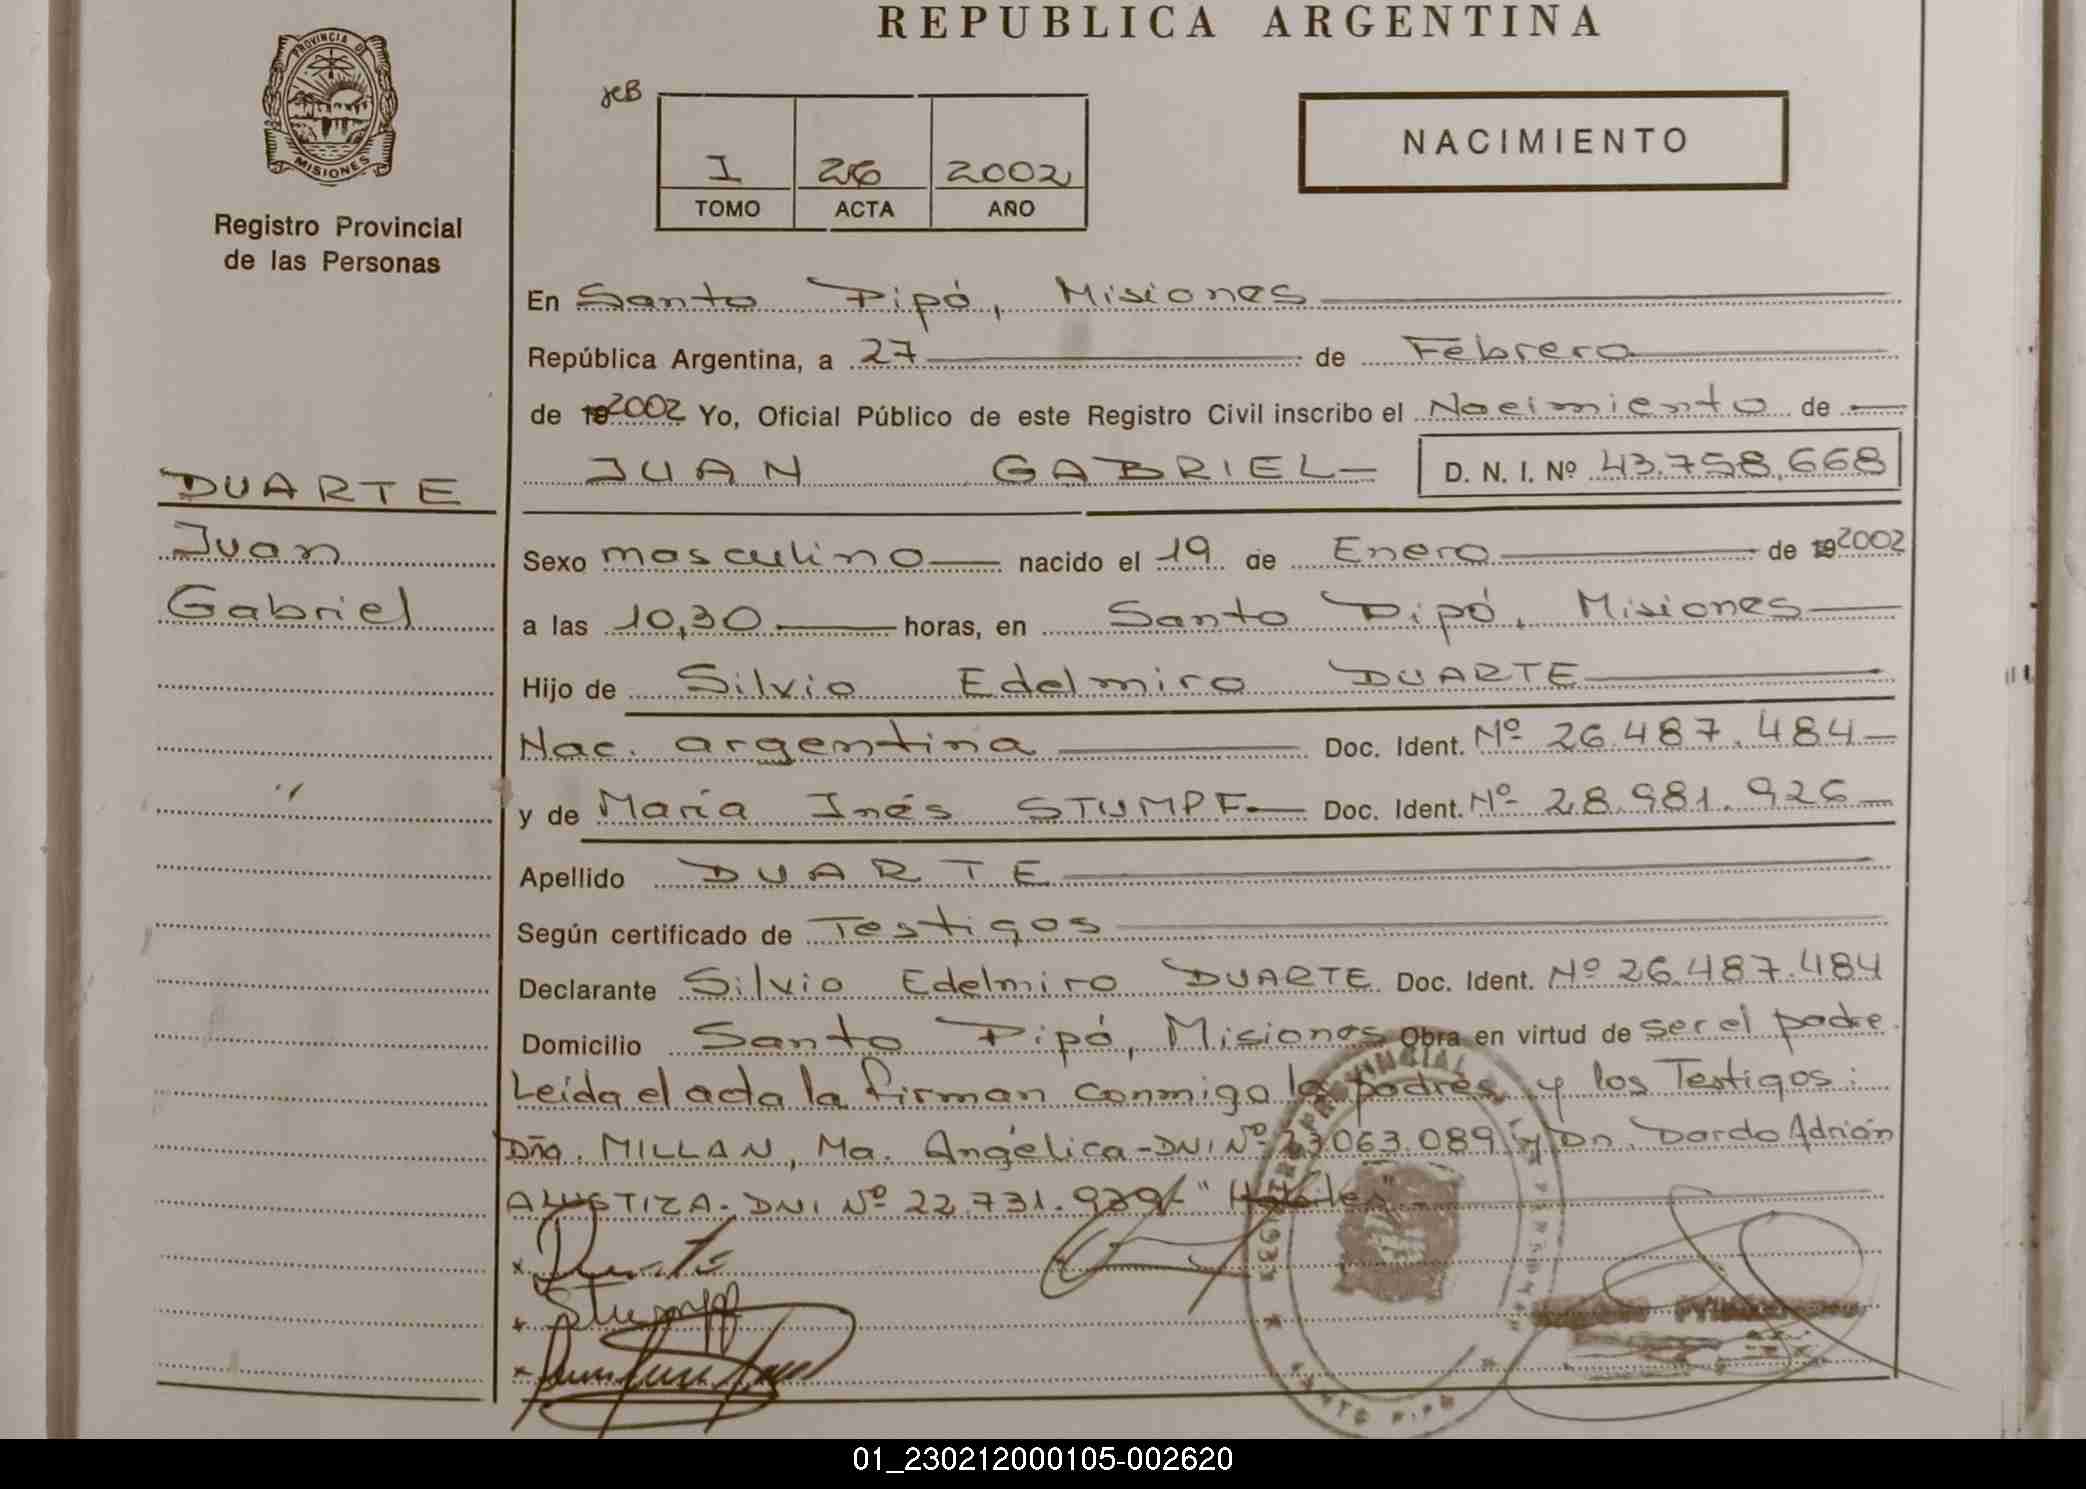 REPUBLICA ARGENTINA
PROVINCIA DE
MISIONES
Registro Provincial
de las Personas
I 26 2002
TOMO ACTA AÑO
NACIMIENTO
DUARTE
Juan
Gabriel
En Santo Pipó, Misiones
República Argentina, a 27 de Febrero
de 192002 Yo, Oficial Público de este Registro Civil inscribo el Nacimiento de
JUAN GABRIEL D. N. I. Nº 43.758.668
Sexo masculino nacido el 19 de Enero de 192002
a las 10,30 horas, en Santo Pipó, Misiones
Hijo de Silvio Edelmiro DUARTE
Nac. argentina Doc. Ident. Nº 26.487.484
y de María Inés STUMPF Doc. Ident. Nº 28.981.926
Apellido DUARTE
Según certificado de Testigos
Declarante Silvio Edelmiro DUARTE Doc. Ident. Nº 26.487.484
Domicilio Santo Pipó, Misiones Obra en virtud de ser el padre.
Leída el acta la firman conmigo los padres y los Testigos:
Dña. MILLAN, Ma. Angélica - DNI Nº 23.063.089 y Dn. Dardo Adrián
ALUSTIZA - DNI Nº 22.731.939 - "Hábiles" -
Stumpf
SANTO PIPO
01_230212000105-002620